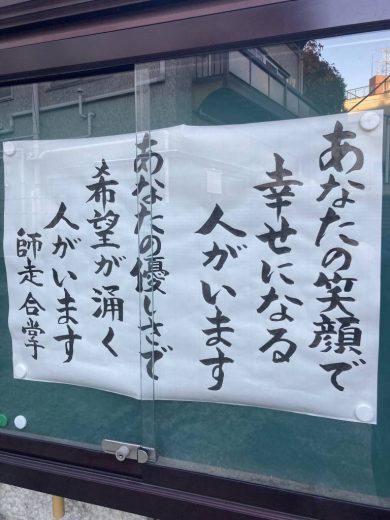 あなたの笑顔で
幸せになる
人がいます
あなたの優しさで
希望が涌く
人がいます
師走 合掌